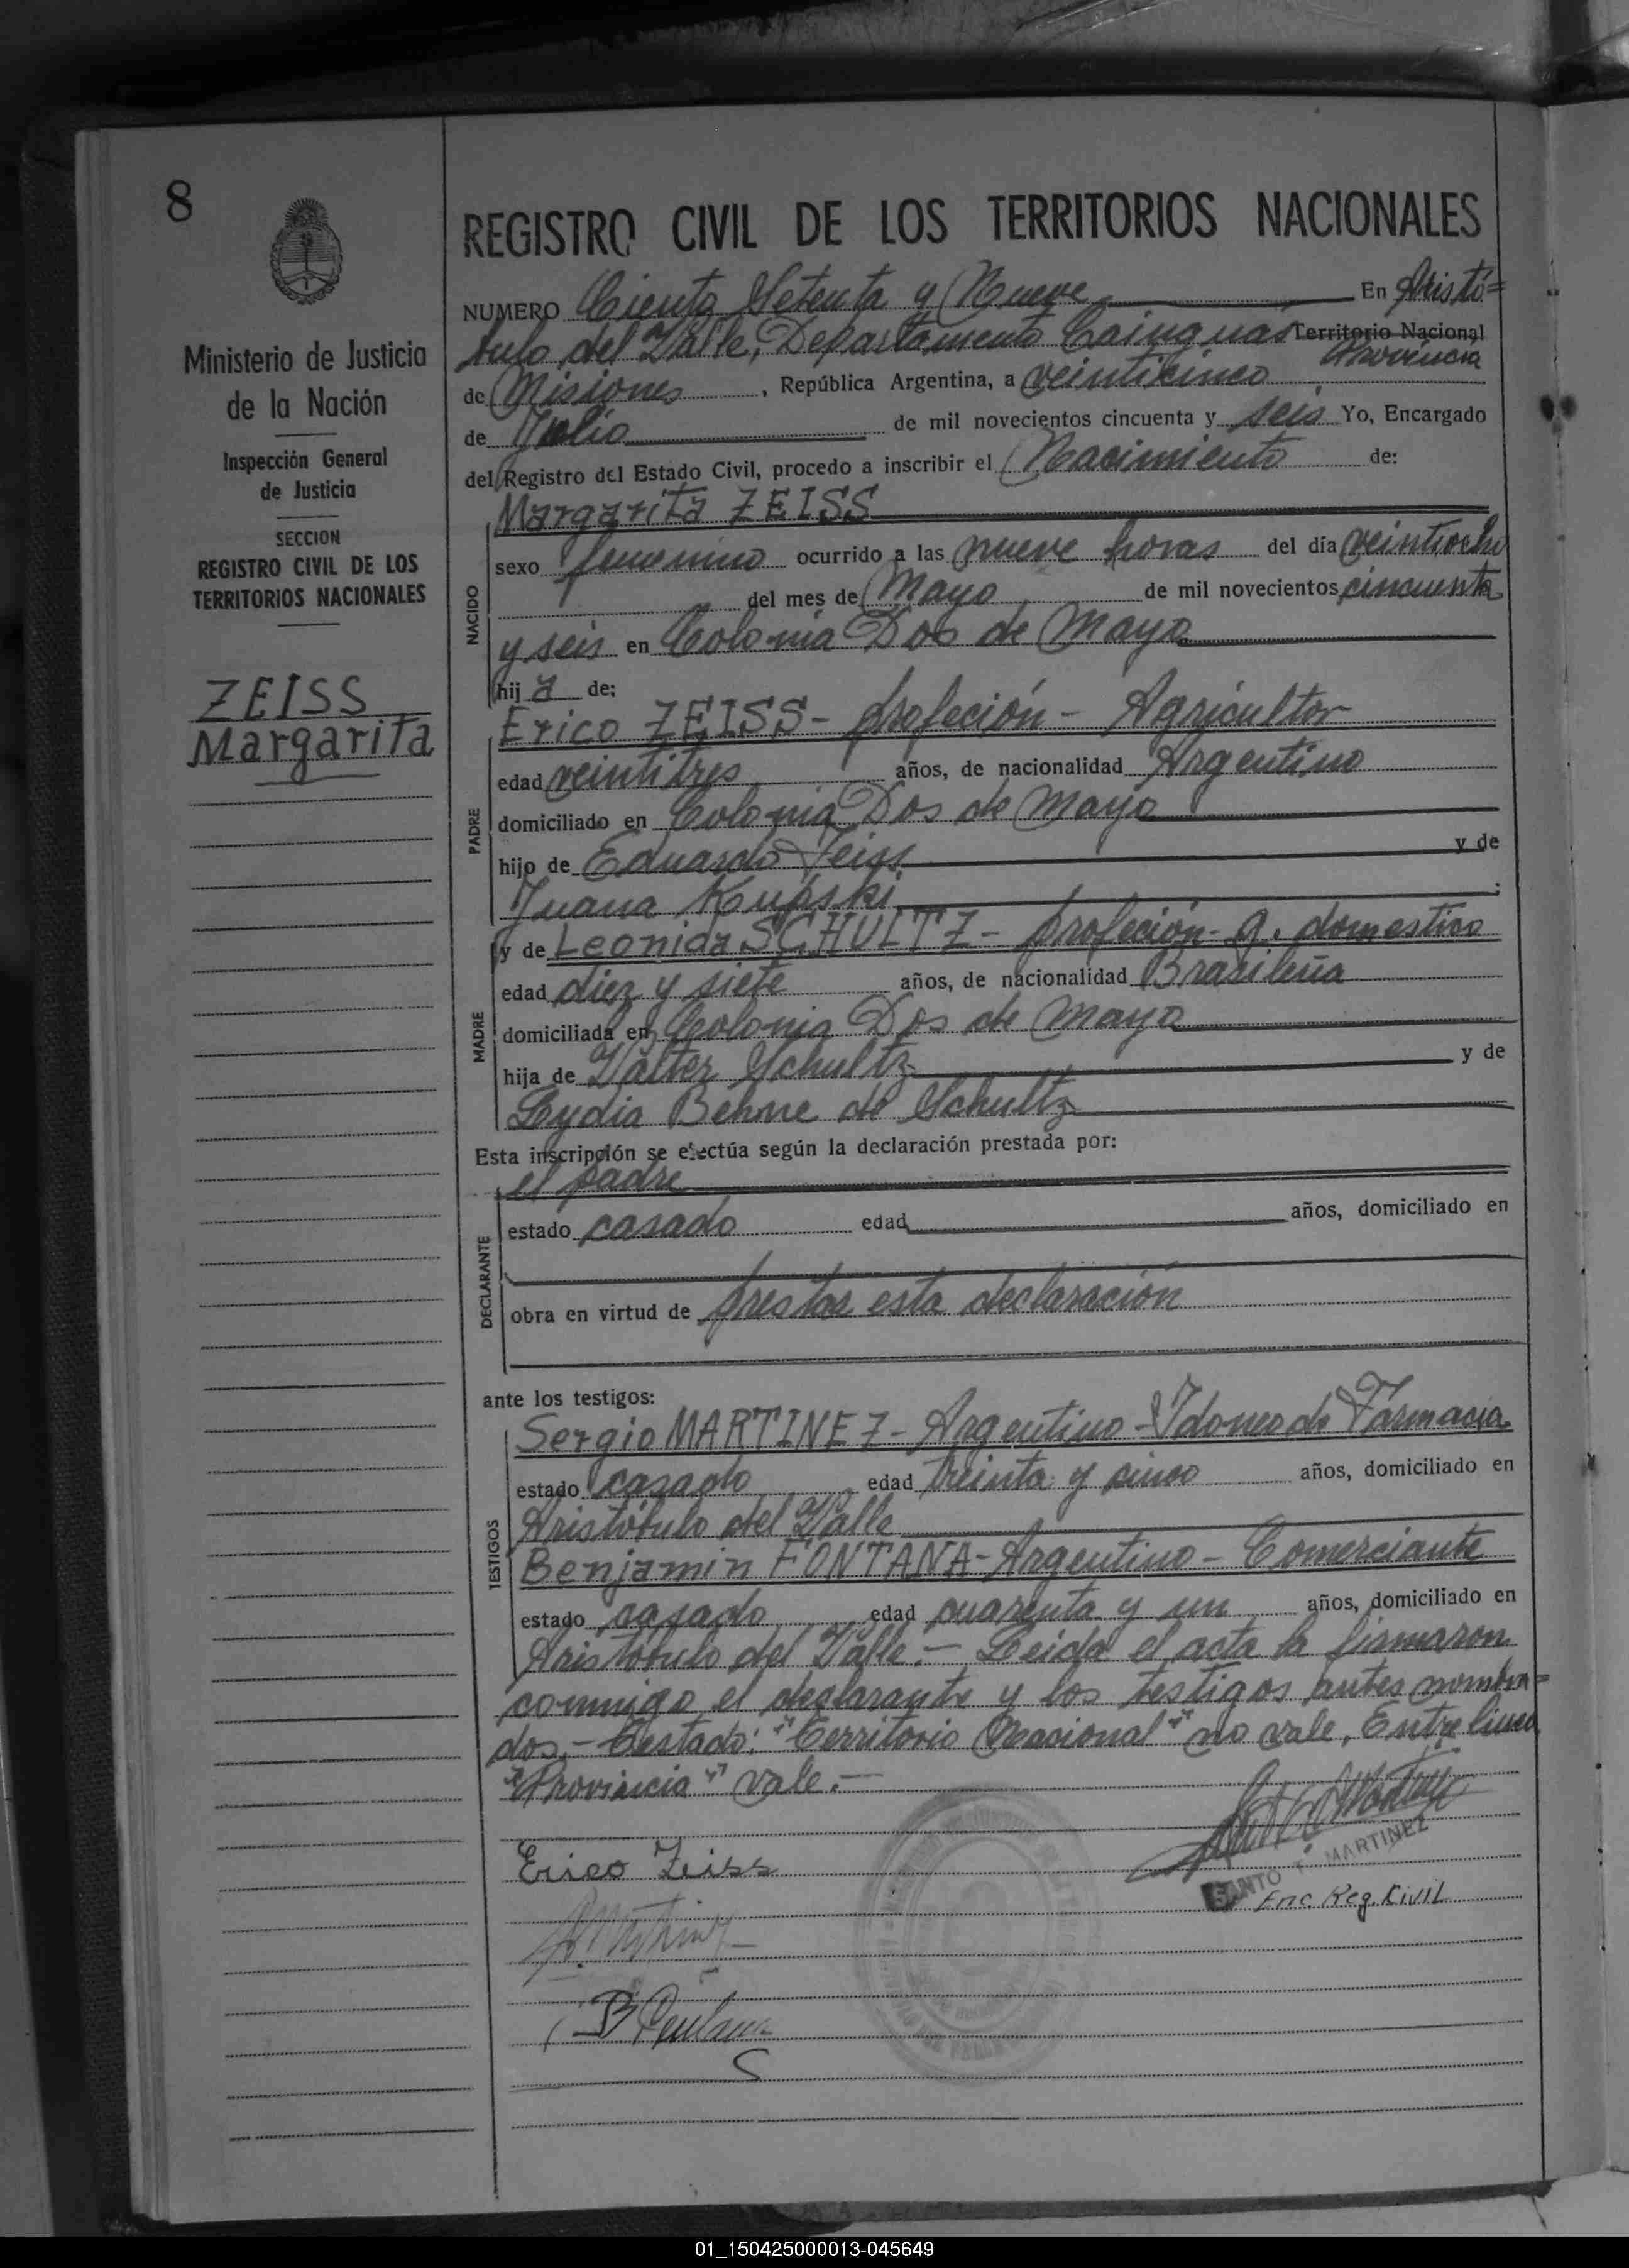 8
REGISTRO CIVIL DE LOS TERRITORIOS NACIONALES
Ministerio de Justicia
de la Nación
Inspección General
de Justicia
SECCION
REGISTRO CIVIL DE LOS
TERRITORIOS NACIONALES
ZEISS
Margarita
NUMERO Ciento Setenta y Nueve En Aristó=
bulo del Valle, Departamento Cainguas Territorio Nacional
Provincia
de Misiones, República Argentina, a veinticinco
de Julio de mil novecientos cincuenta y seis Yo, Encargado
del Registro del Estado Civil, procedo a inscribir el Nacimiento de:
Margarita ZEISS
NACIDO
sexo femenino ocurrido a las nueve horas del día veintiocho
del mes de Mayo de mil novecientos cincuenta
y seis en Colonia Dos de Mayo
hija de:
Erico ZEISS- profeción- Agricultor
PADRE
edad veintitres años, de nacionalidad Argentino
domiciliado en Colonia Dos de Mayo
hijo de Eduardo Zeiss y de
Juana Kupski;
y de Leonida SCHULTZ- profeción- q. domestico
MADRE
edad diez y siete años, de nacionalidad Brasileña
domiciliada en Colonia Dos de Mayo
hija de Valter Schultz y de
Lydia Behne de Schultz
Esta inscripción se efectúa según la declaración prestada por:
el padre
DECLARANTE
estado casado edad años, domiciliado en
obra en virtud de prestar esta declaración
ante los testigos:
TESTIGOS
Sergio MARTINEZ- Argentino- Idoneo de Farmacia
estado casado edad treinta y cinco años, domiciliado en
Aristóbulo del Valle
Benjamin FONTANA- Argentino- Comerciante
estado casado edad cuarenta y un años, domiciliado en
Aristóbulo del Valle.- Leida el acta la firmaron
conmigo el declarante y los testigos antes nombra=
dos.- Testado: "Territorio Nacional" no vale, Entre linea
"Provincia" vale.-
Erico Zeiss
SANTO MARTINEZ
Enc. Reg. Civil
01_150425000013-045649